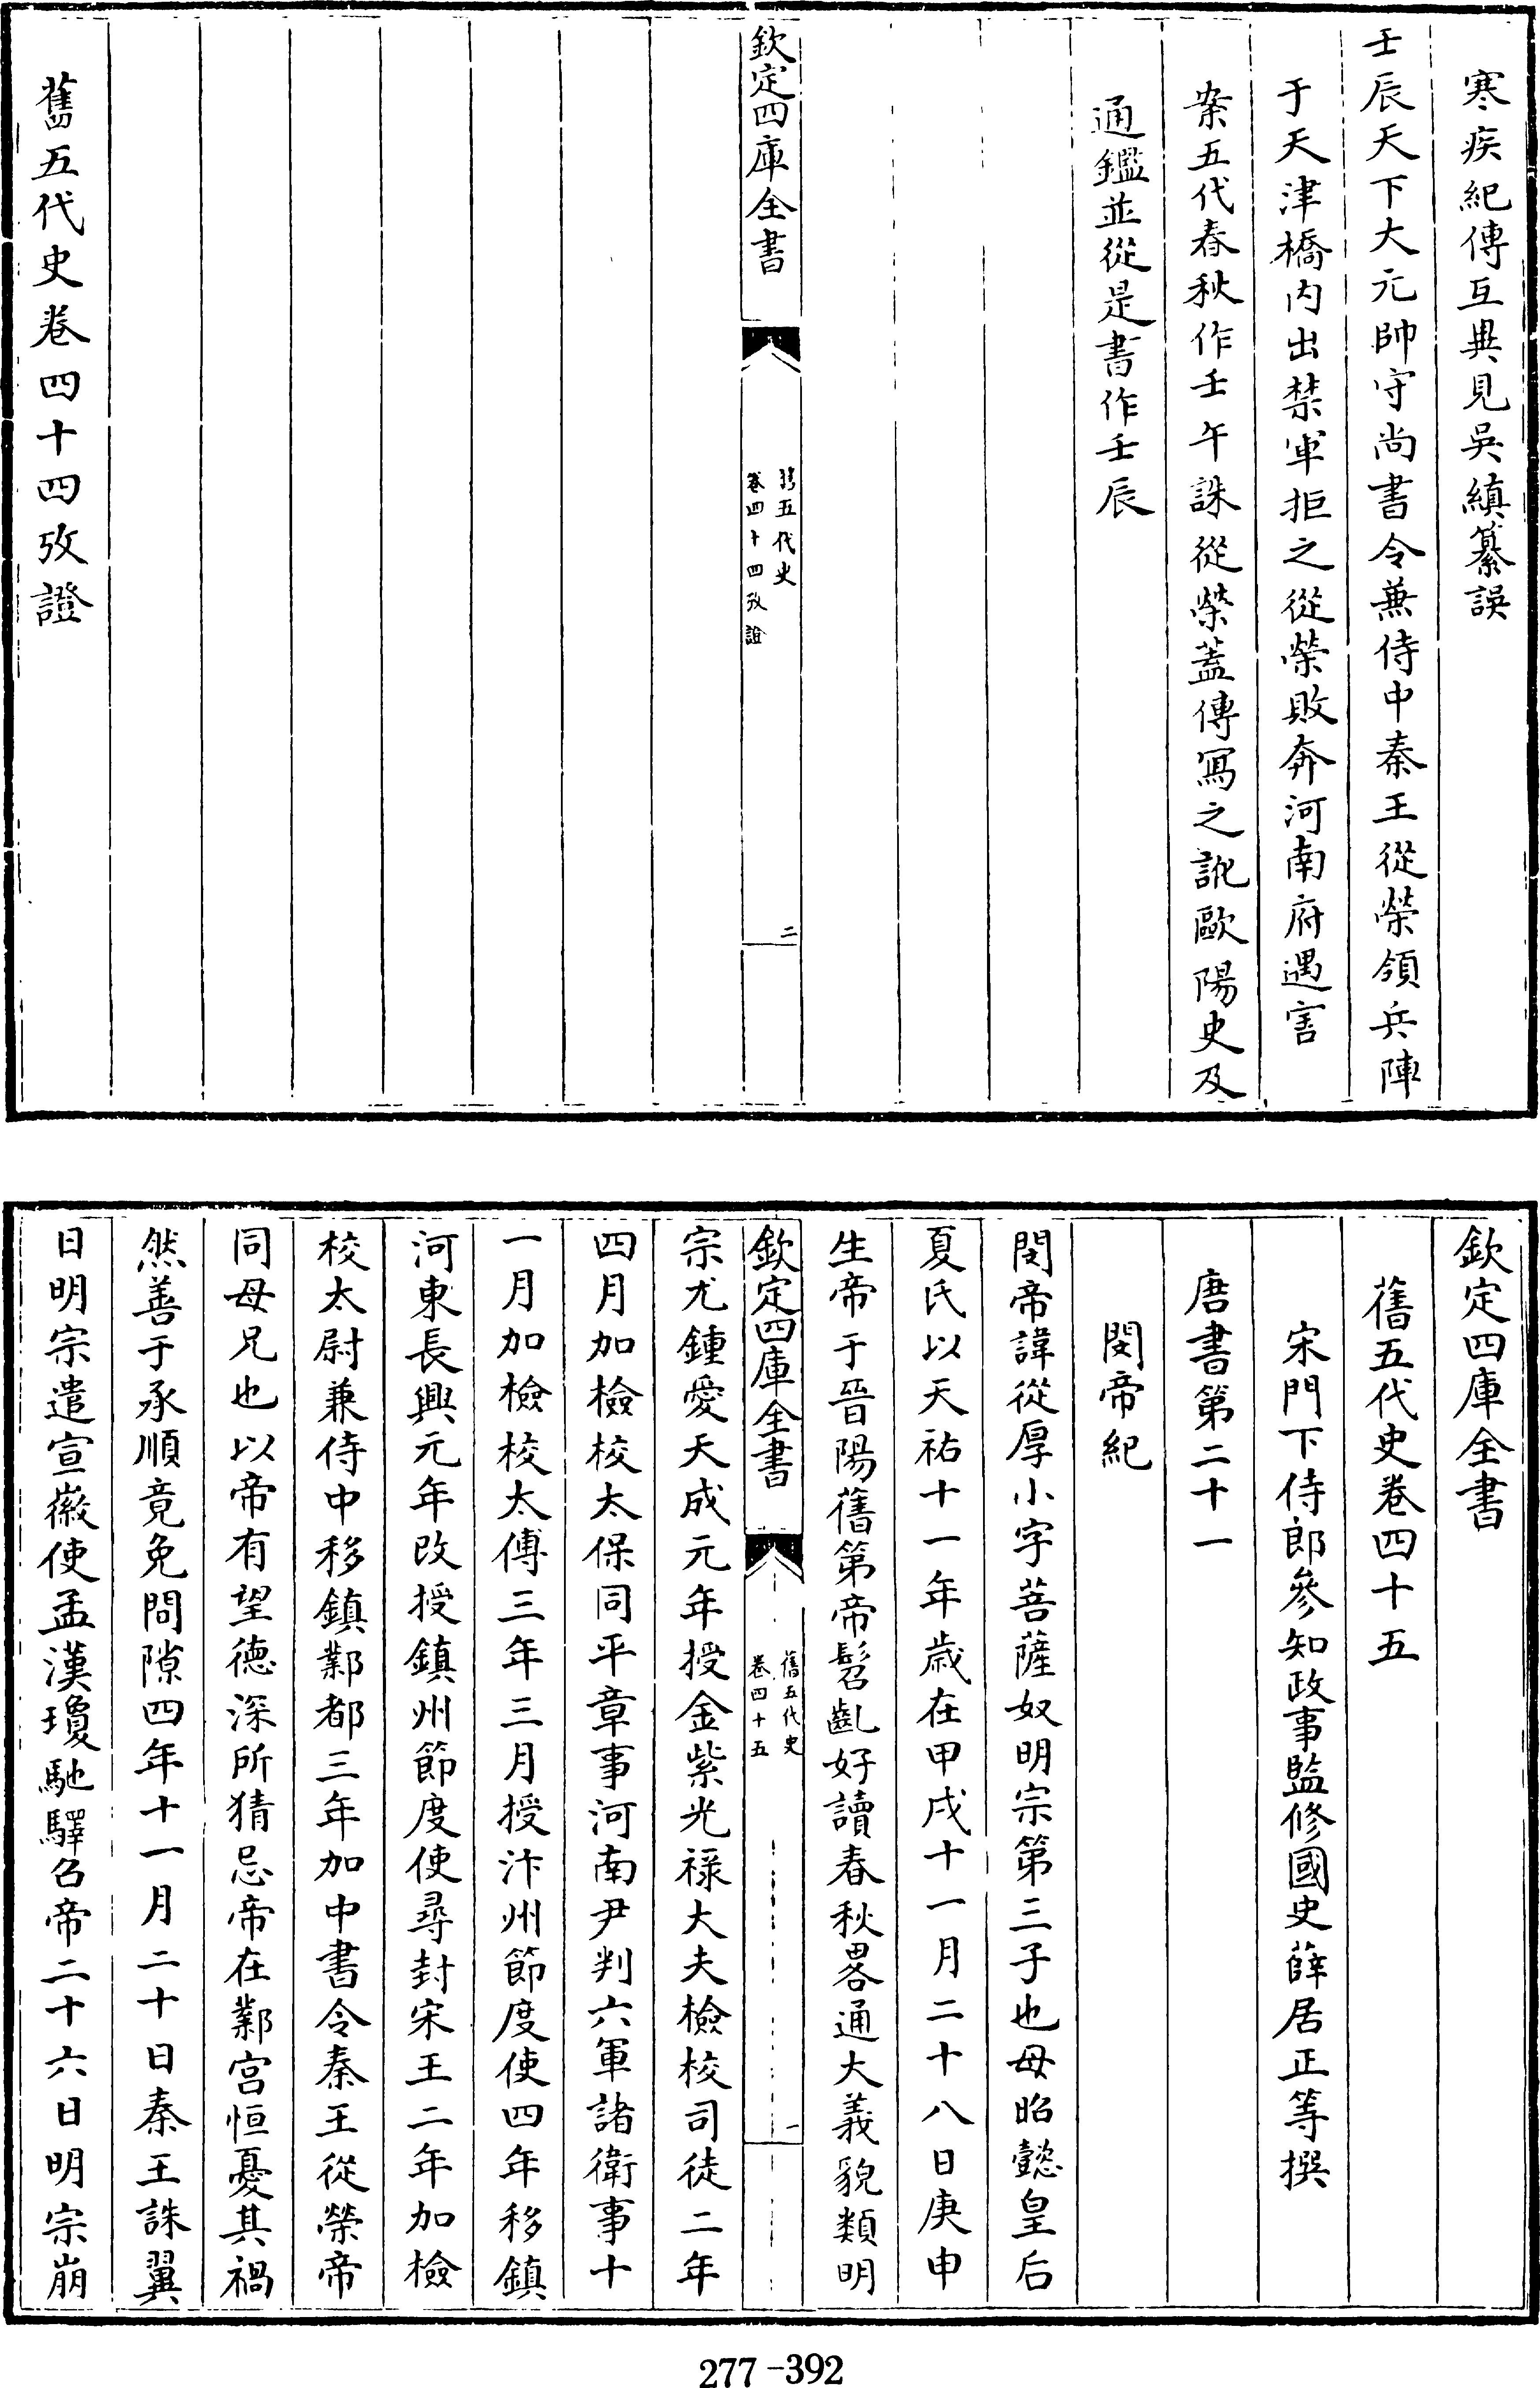 寒疾紀傳互異見吳縝纂誤
壬辰天下大元帥守尚書令兼侍中秦王從榮領兵陣
于天津橋内出禁軍拒之從榮敗奔河南府遇害
案五代春秋作壬午誅從榮蓋傳寫之訛歐陽史及
通鑑並從是書作壬辰
欽定四庫全書
舊五代史
卷四十四攷證
二
舊五代史卷四十四攷證
欽定四庫全書
舊五代史卷四十五
宋門下侍郎參知政事監修國史薛居正等撰
唐書第二十一
閔帝紀
閔帝諱從厚小字菩薩奴明宗第三子也母昭懿皇后
夏氏以天祐十一年歲在甲戌十一月二十八日庚申
生帝于晉陽舊第帝髫齓好讀春秋畧通大義貌類明
欽定四庫全書
舊五代史
卷四十五
一
宗尤鍾愛天成元年授金紫光祿大夫檢校司徒二年
四月加檢校太保同平章事河南尹判六軍諸衛事十
一月加檢校太傅三年三月授汴州節度使四年移鎮
河東長興元年改授鎮州節度使尋封宋王二年加檢
校太尉兼侍中移鎮鄴都三年加中書令秦王從榮帝
同母兄也以帝有望德深所猜忌帝在鄴宫恒憂其禍
然善于承順竟免間隙四年十一月二十日秦王誅翼
日明宗遣宣徽使孟漢瓊馳驛召帝二十六日明宗崩
277-392